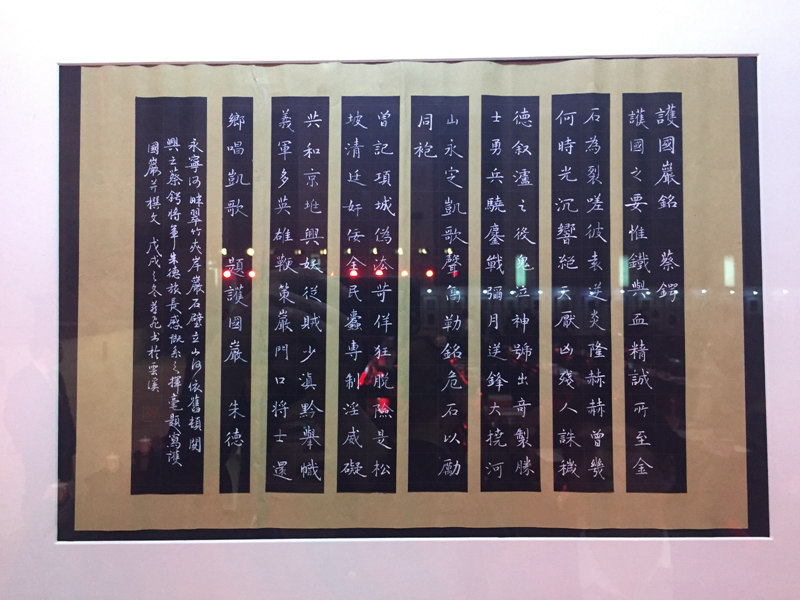 護國巖銘 蔡鍔
護國之要惟鐵與血精誠所至金
石為裂嗟彼袁逆炎隆赫赫曾幾
何時光沉響絕天厭凶殘人誅穢
德叙瀘之役鬼泣神號出奇製勝
士勇兵驍鏖戰彌月逆鋒大撓河
山永定凱歌聲高勒銘危石以勵
同袍
曾記項城偽法苛佯狂脫險是松
坡清廷奸佞全民蠹專制淫威礙
共和京興妖從賊少滇黔舉幟
義軍多英雄鞭策巖門口將士還
鄉唱凱歌 題護國巖 朱德
永寧河畔翠竹夾岸巖石壁立山河依舊頓開
興之蔡鍔將軍朱德放長感慨系之揮毫題寫護
國巖并撰文 戊戌之冬書於雲溪